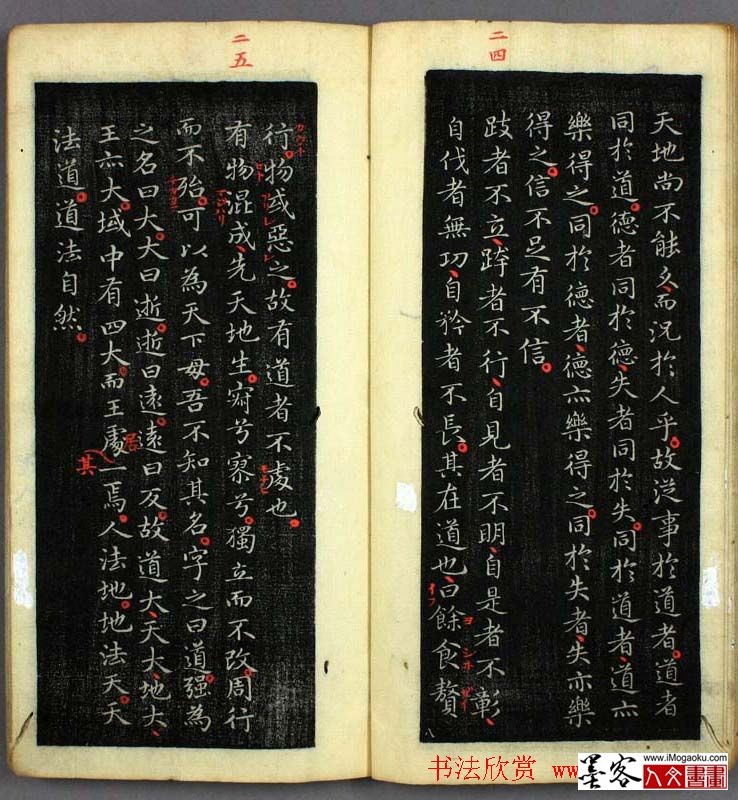 二四
天地尚不能久而況於人乎故従事於道者道者
同於道德者同於德失者同於失同於道者道亦
樂得之同於德者德亦樂得之同於失者失亦樂
得之信不足有不信
跂者不立跨者不行自見者不明自是者不彰
自伐者無功自矜者不長其在道也曰餘食贅
イフ
ヨ
シヰ
ゼイ
八
二五
行物或惡之故有道者不處也
有物混成先天地生寂兮寥兮獨立而不改周行
而不殆可以為天下母吾不知其名字之曰道強為
之名曰大大曰逝逝曰遠遠曰反故道大天大地大
王亦大域中有四大而王處一焉人法地地法天天
法道道法自然
居
其
书法欣赏 www
墨客
人文書畫
www.iMogaoku.com